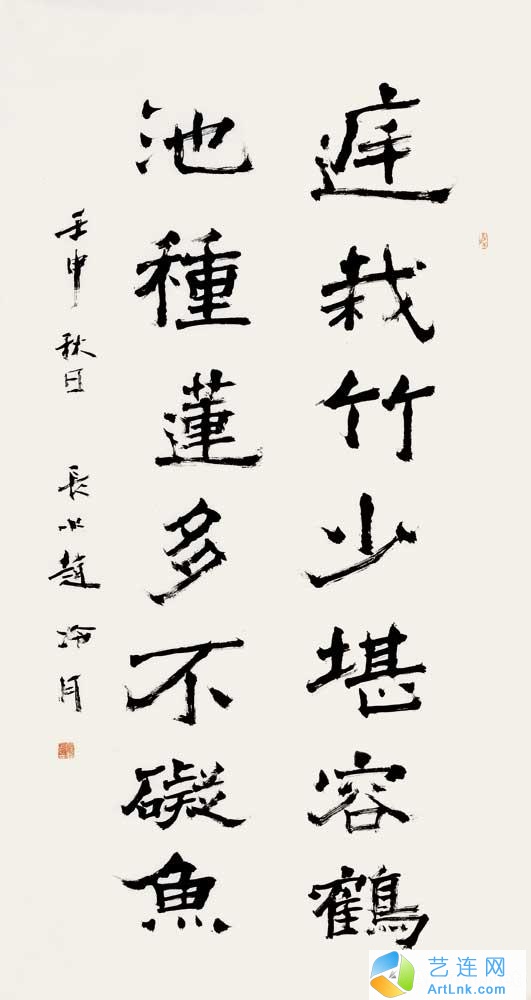 庭栽竹少堪容鶴
池種蓮多不礙魚
壬申秋日 長水趙冷月
艺连网
ArtLnk.com